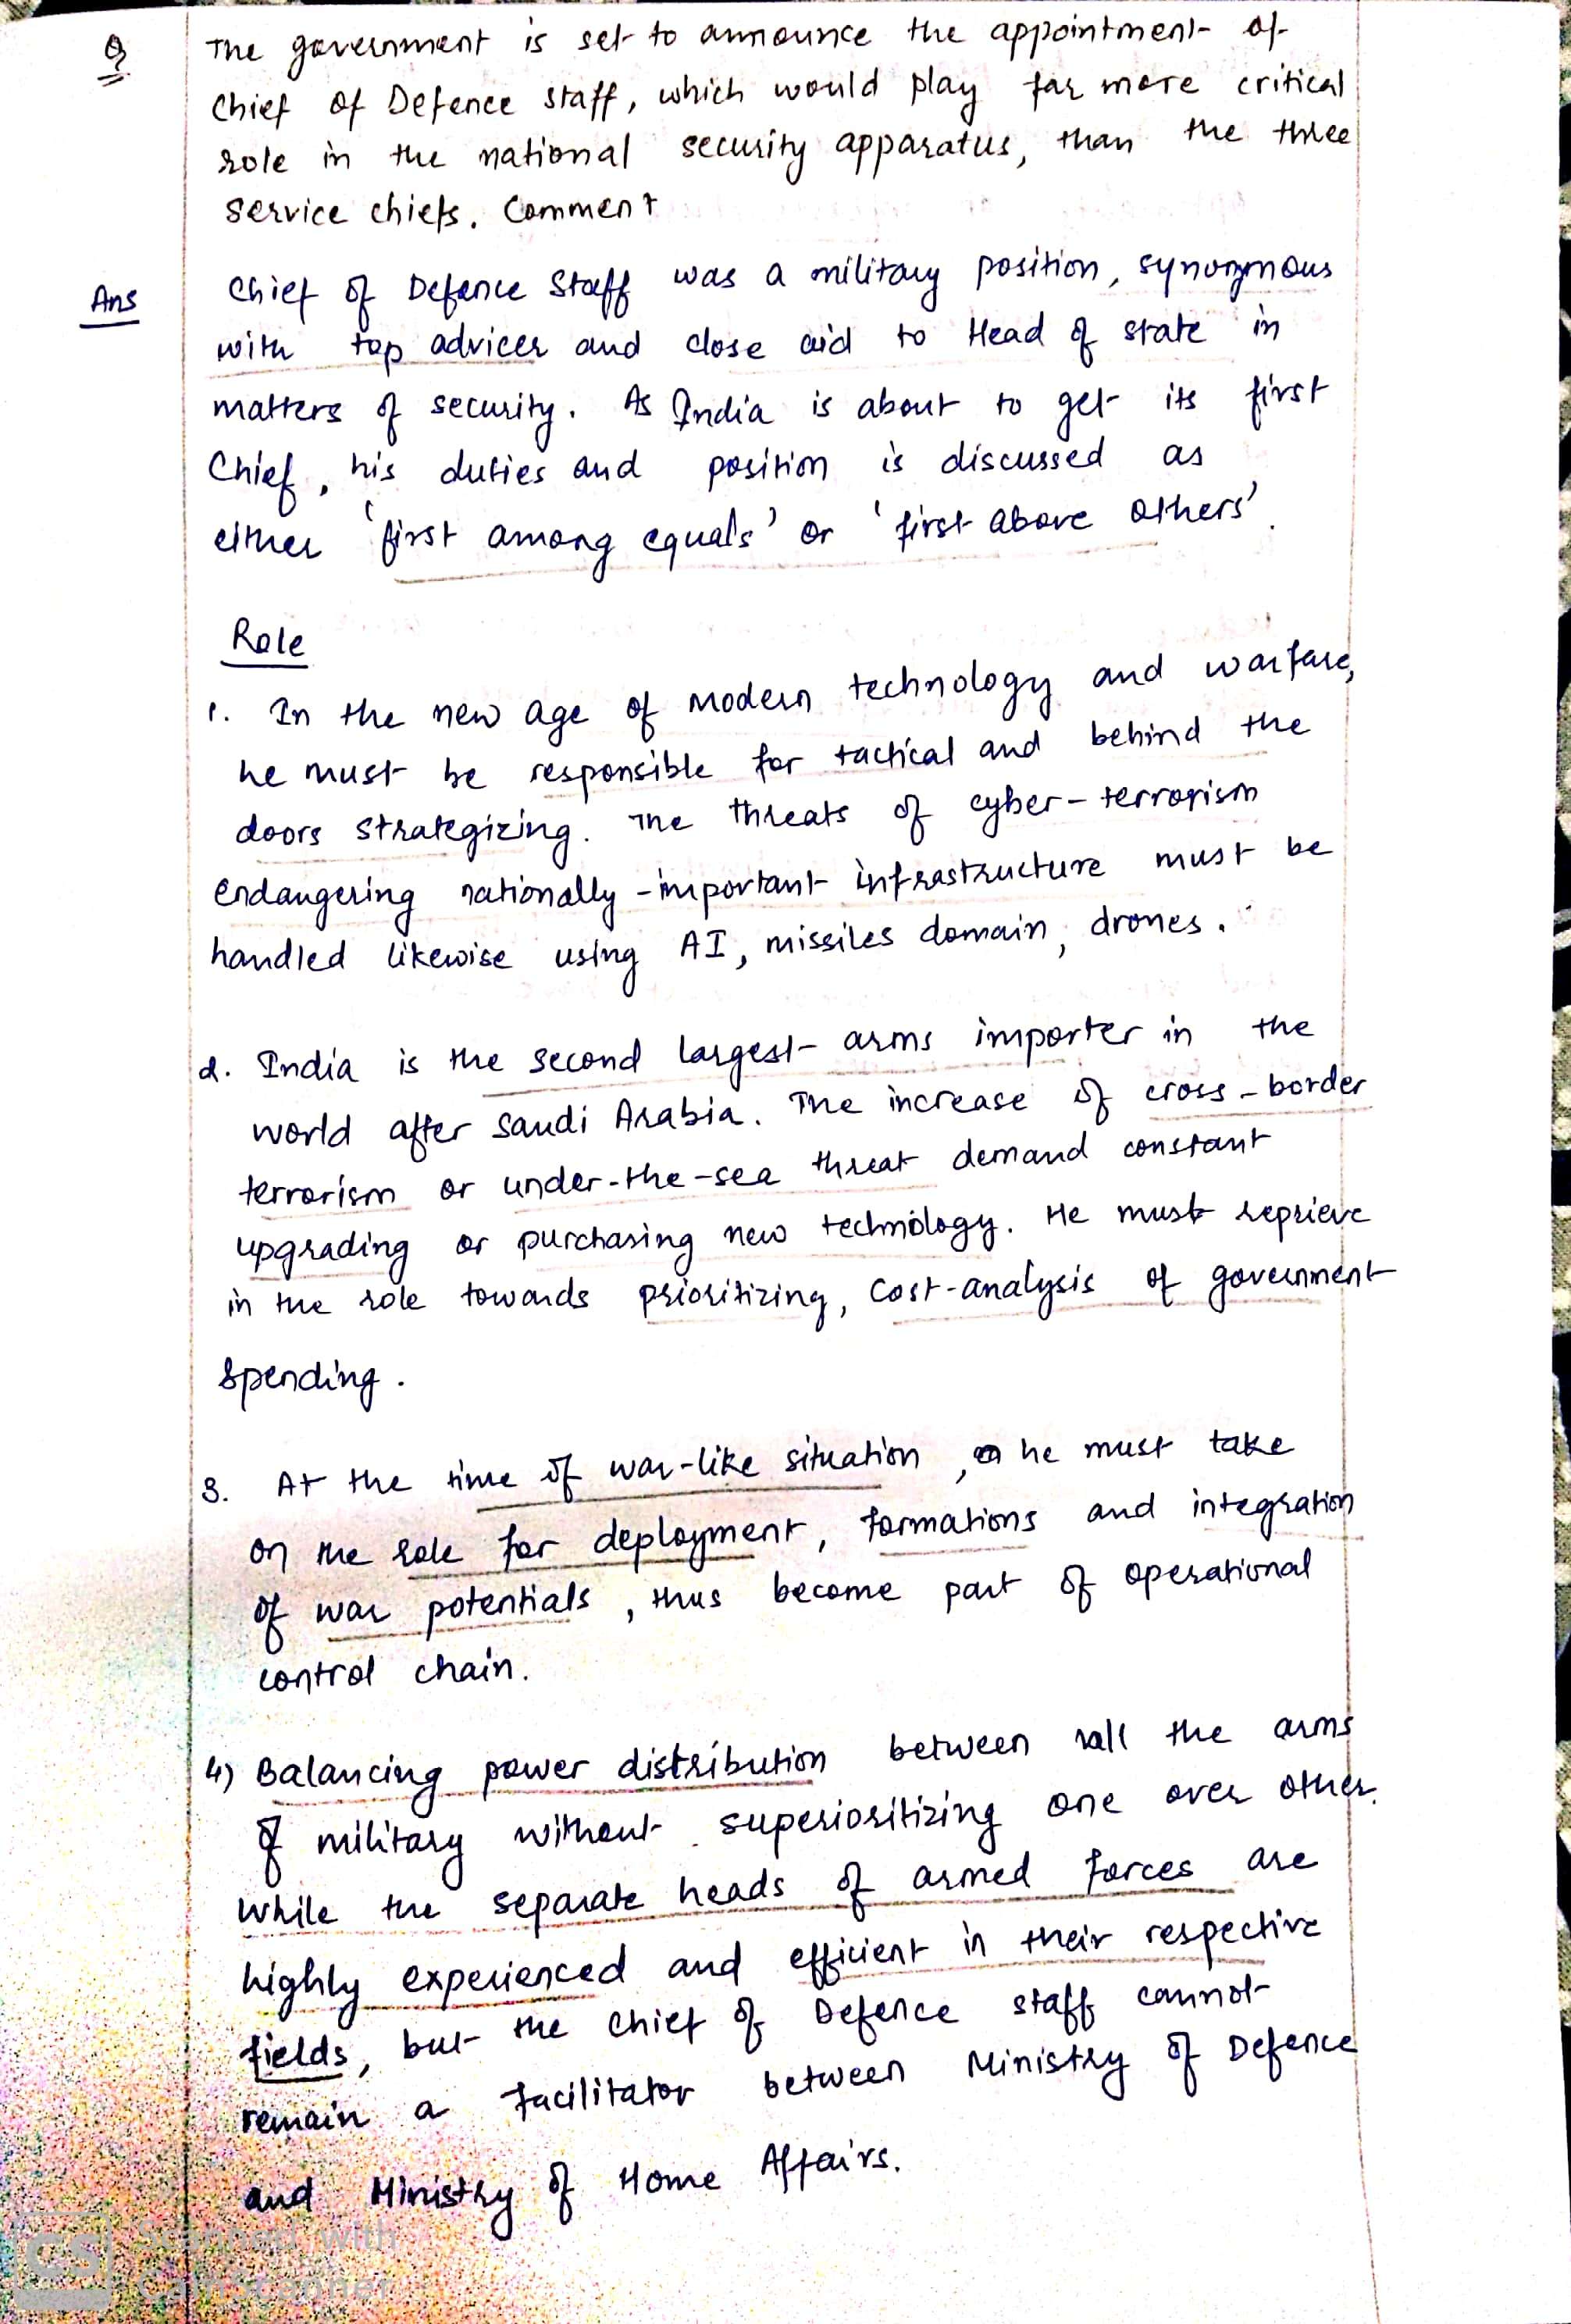 Q The government is set to announce the appointment of
Chief of Defence staff, which would play far more critical
role in the national security apparatus, than the three
service chiefs. Comment
Ans Chief of Defence Staff was a military position, synonymous
with top advicer and close aid to Head of state in
matters of security. As India is about to get its first
Chief, his duties and position is discussed as
either 'first among equals' or 'first above others'.
Role
1. In the new age of modern technology and warfare,
he must be responsible for tactical and behind the
doors strategizing. The threats of cyber-terrorism
endangering nationally-important infrastructure must be
handled likewise using AI, missiles domain, drones.
2. India is the second largest arms importer in the
world after Saudi Arabia. The increase of cross-border
terrorism or under-the-sea threat demand constant
upgrading or purchasing new technology. He must reprieve
in the role towards prioritizing, cost-analysis of government
spending.
3. At the time of war-like situation, he must take
on the role for deployment, formations and integration
of war potentials, thus become part of operational
control chain.
4) Balancing power distribution between all the arms
of military without superioritizing one over other.
While the separate heads of armed forces are
highly experienced and efficient in their respective
fields, but the Chief of Defence staff cannot
remain a facilitator between Ministry of Defence
and Ministry of Home Affairs.
CS Scanned with
CamScanner